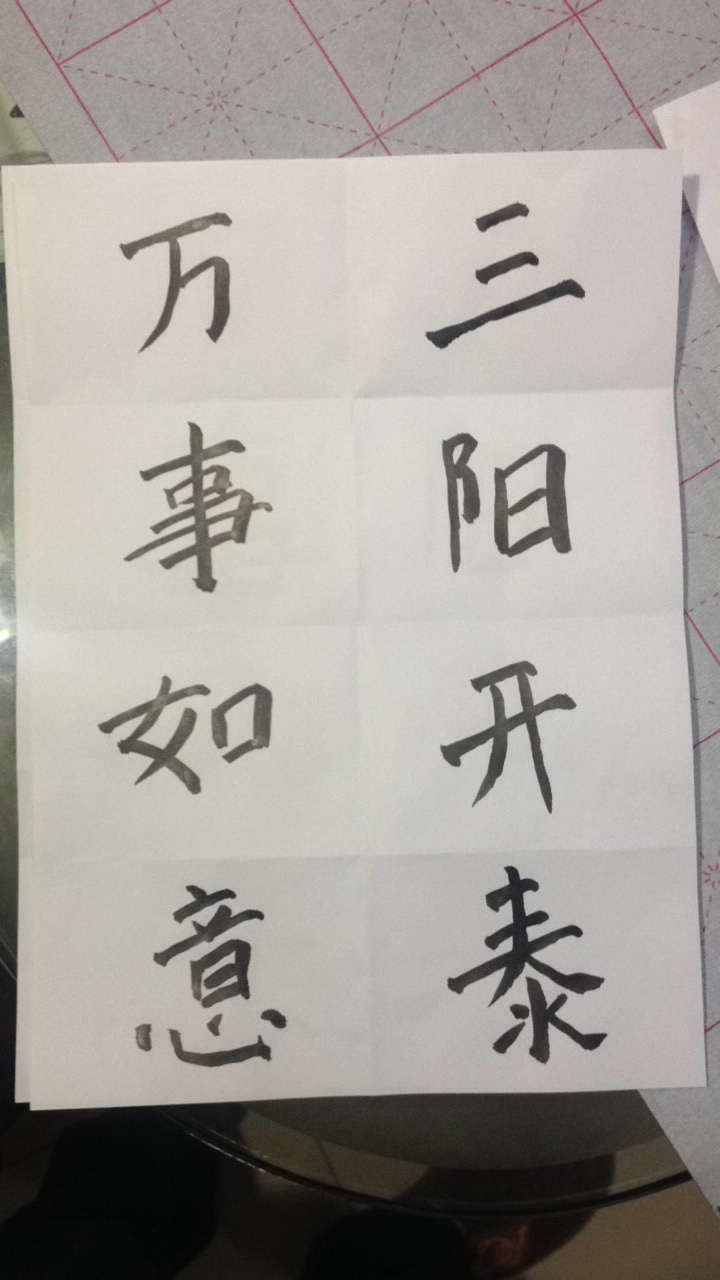 三阳开泰
万事如意